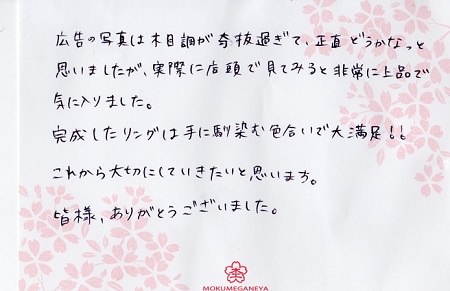 広告の写真は木目調が奇抜過ぎて、正直どうかなっと
思いましたが、実際に店頭で見てみると非常に上品で
気に入りました。
完成したリングは手に馴染む色合いで大満足!!
これから大切にしていきたいと思います。
皆様、ありがとうございました。
MOKUMEGANEYA